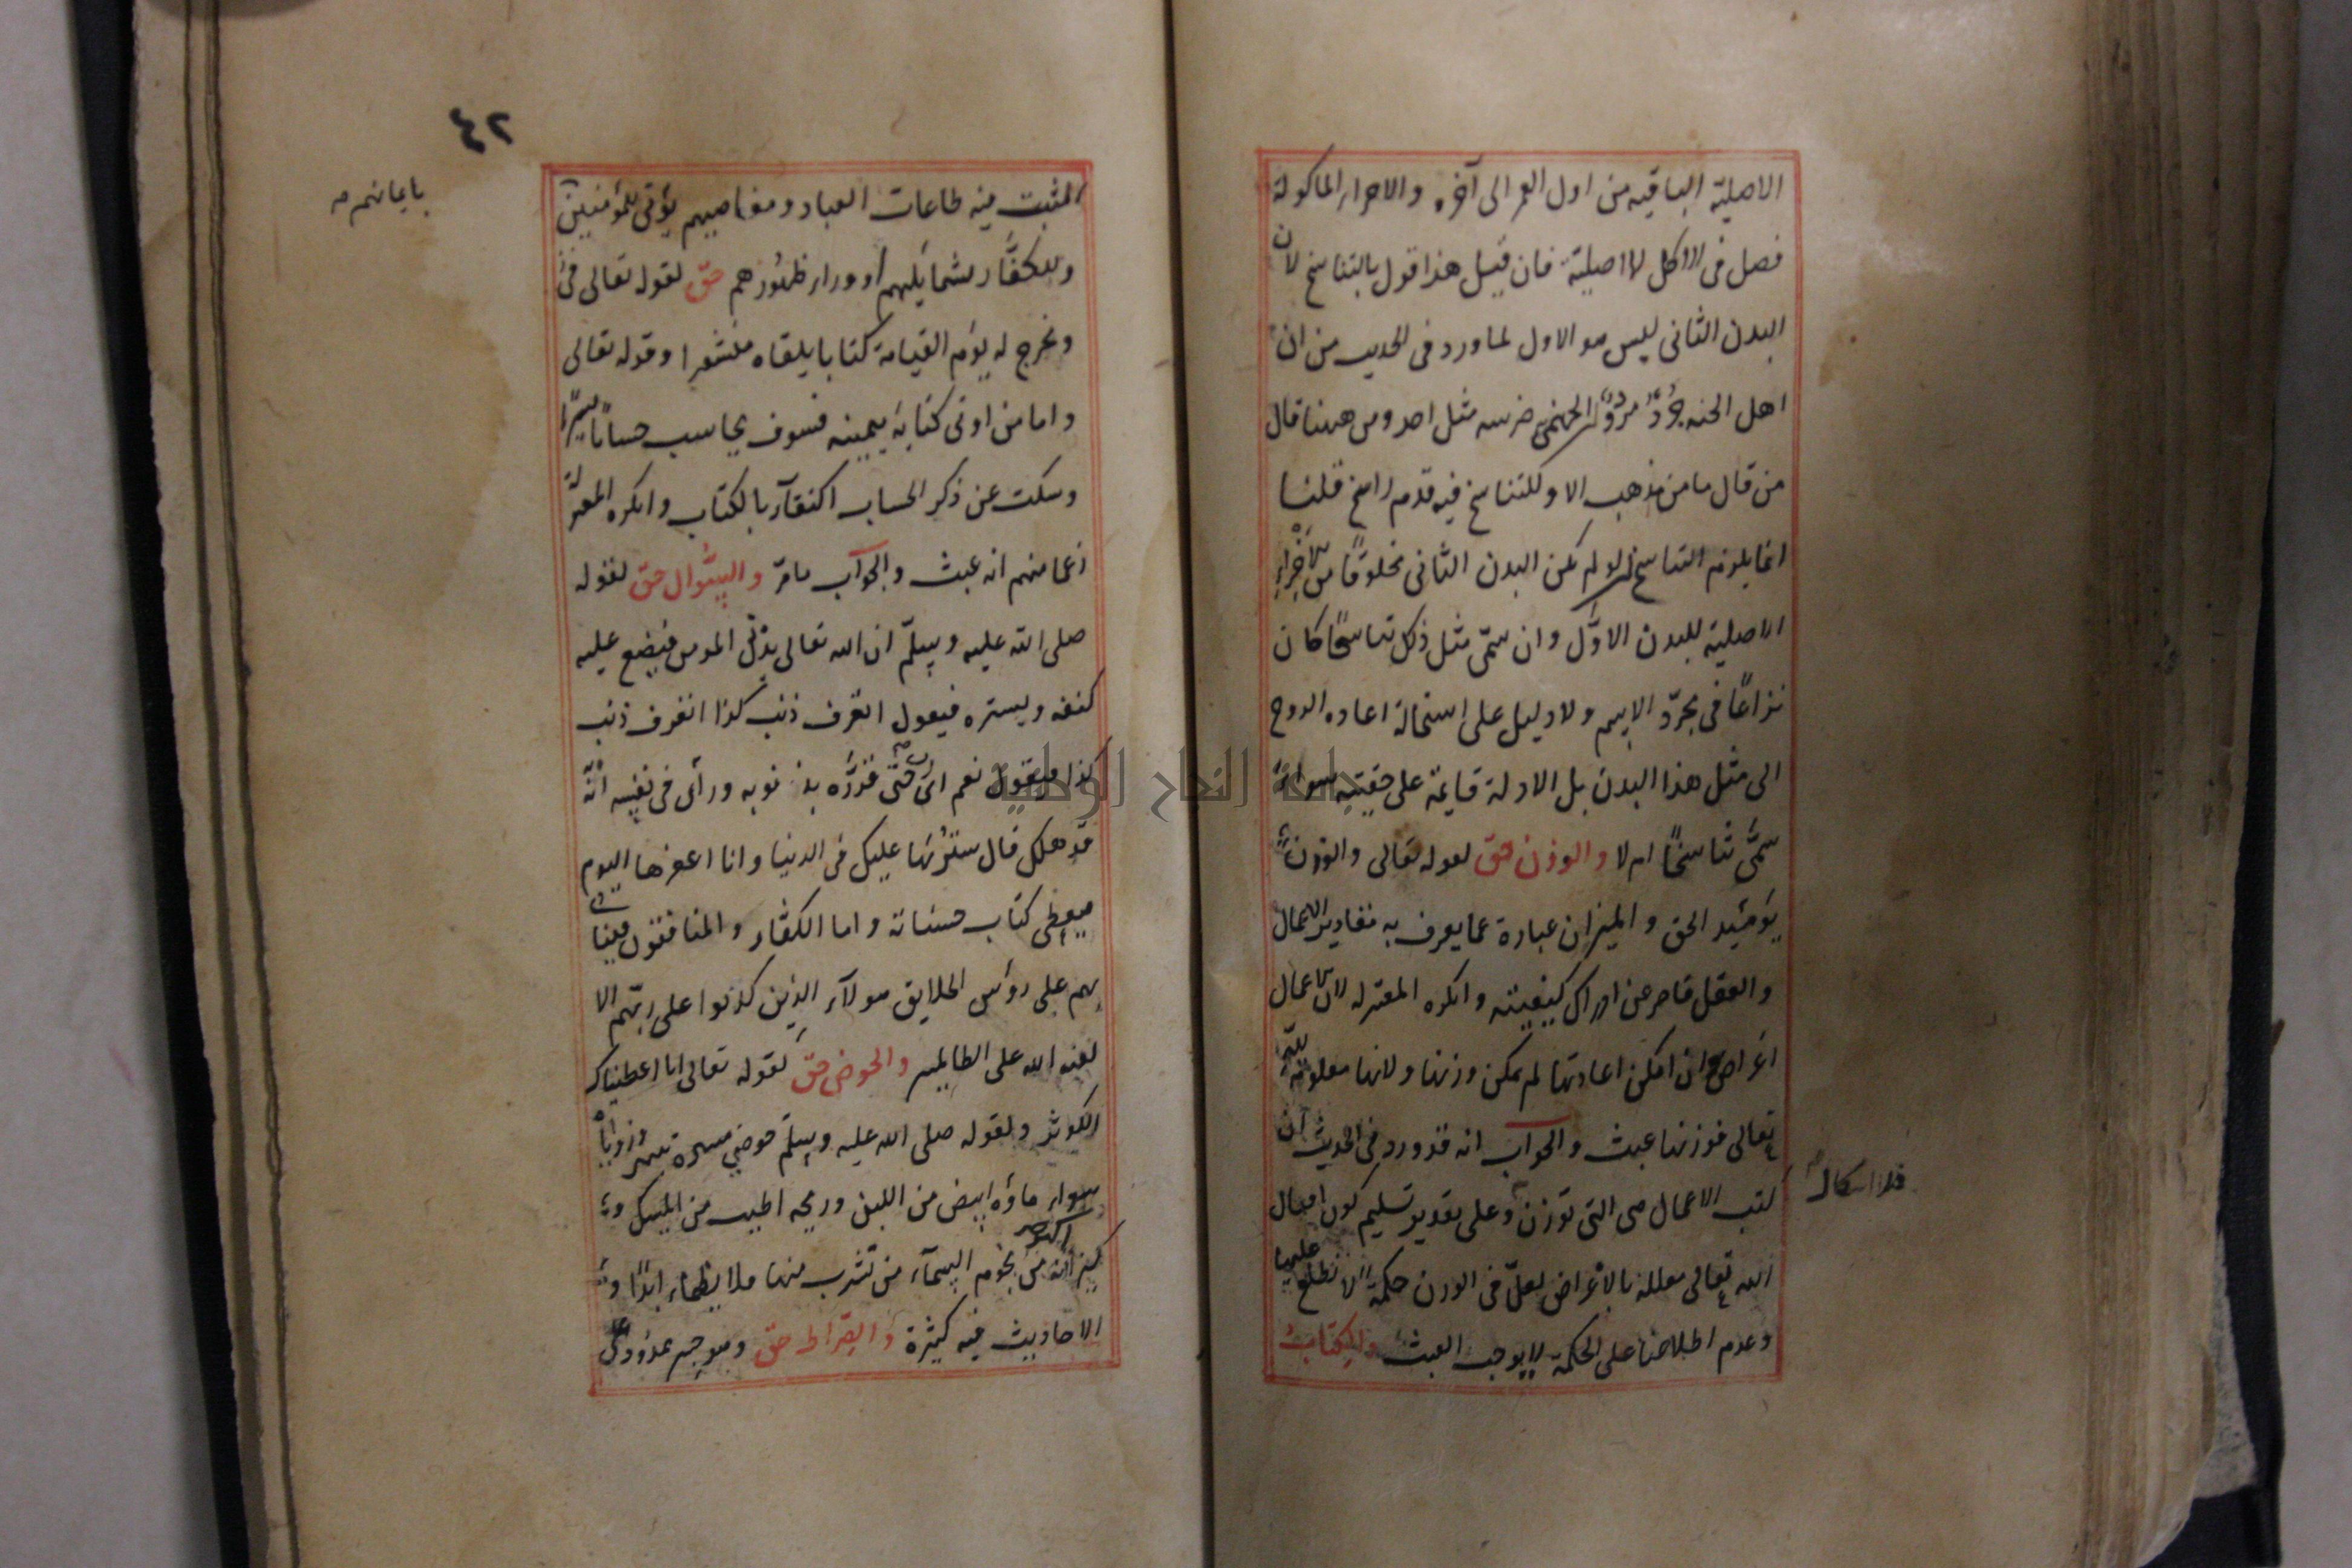 الاصلية الباقيه من اول العمر الى آخره والاجزاء الماكولة
فصل فى الاكل لا اصلية فان قيل هذا قول بالتناسخ لان
البدن الثانى ليس هو الاول لما ورد فى الحديث من ان
اهل الجنه جرد مرد وان الجهنمى ضرسه مثل احد ومن ههنا قال
من قال ما من مذهب الا وللتناسخ فيه قدم راسخ قلنا
انما يلزم التناسخ لو لم يكن البدن الثانى مخلوقا من الاجزاء
الاصلية للبدن الاول وان سمى مثل ذلك تناسخا كان
نزاعا فى مجرد الاسم ولا دليل على استحالة اعاده الروح
الى مثل هذا البدن بل الادلة قايمة على حقيته سواء
سمى تناسخا ام لا والوزن حق لقوله تعالى والوزن
يومئيد الحق والميزان عبارة عما يعرف به مقادير الاعمال
والعقل قاصر عن ادراك كيفيته وانكره المعتزله لان الاعمال
اعراض وان امكن اعادتها لم يمكن وزنها ولانها معلومة لله
تعالى فوزنها عبث والجواب انه قد ورد فى الحديث ان
كتب الاعمال هى التى توزن وعلى تقدير تسليم كون افعال
فلا اشكال
الله تعالى معللة بالاغراض لعل فى الوزن حكمة لا نطلع عليها
وعدم اطلاعنا على الحكمة لا يوجب العبث والكتاب
٤٢
المثبت فيه طاعات العباد ومعاصيهم يؤتى للمؤمنين
بايمانهم صه
وللكفار لشمايلهم او وراء ظهورهم حق لقوله تعالى
ونخرج له يوم القيامة كتابا يلقاه منشورا وقوله تعالى
واما من اوتى كتابه بيمينه فسوف يحاسب حسابا يسيرا
وسكت عن ذكر الحساب اكتفآء بالكتاب وانكره المعتزلة
زعما منهم انه عبث والجواب ما مر والسؤال حق لقوله
صلى الله عليه وسلم ان الله تعالى يدنى المومن فيضع عليه
كنفه ويستره فيقول اتعرف ذنب كذا اتعرف ذنب
كذا فيقول نعم اى رب حتى قرره بذنوبه ورأى فى نفسه انه
قد هلك قال سترتها عليك فى الدنيا وانا اغفرها اليوم
فيعطى كتاب حسناته واما الكفار والمنافقون فينادى
بهم على روس الخلايق هولآء الذين كذبوا على ربهم الا
لعنه الله على الظالمين والحوض حق لقوله تعالى انا اعطيناك
الكوثر ولقوله صلى الله عليه وسلم حوضى مسيره شهر وزواياه
سواء ماؤه ابيض من اللبن وريحه اطيب من المسك
كيزانه اكثر من نجوم السمآء من تشرب منها فلا يظماء ابدا
الاحاديث فيه كثيرة والصراط حق وهو جسر ممدود على
جامعة النجاح الوطنية